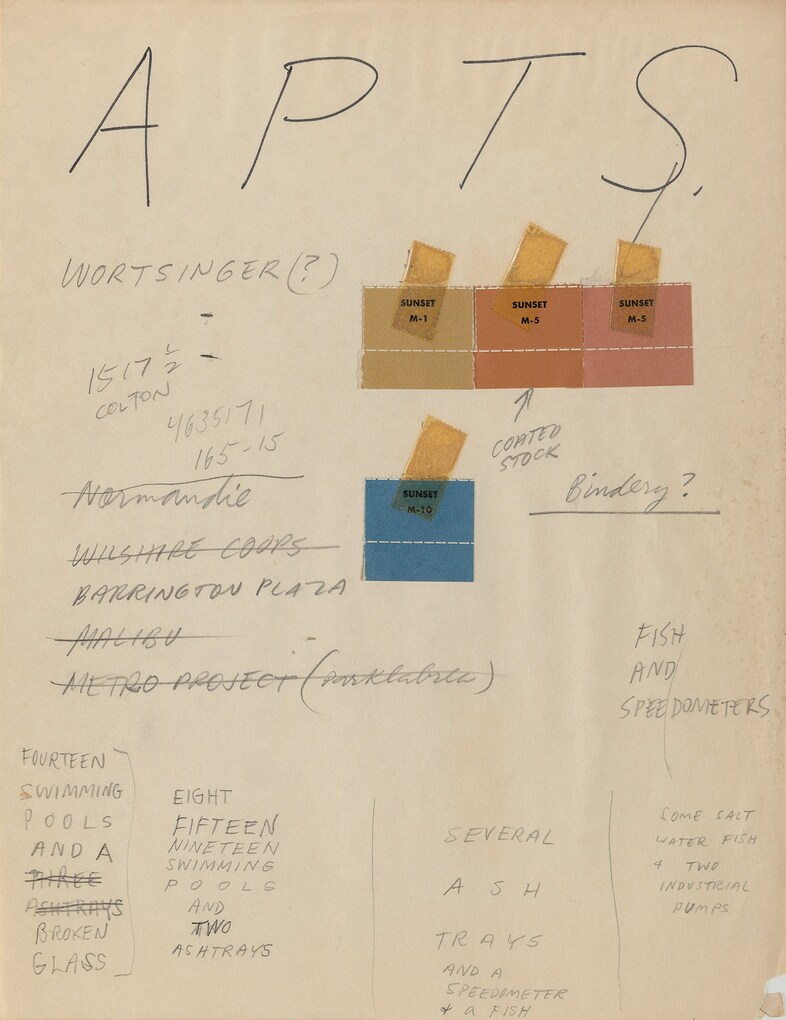 APTS.
WORTSINGER (?)
-
-
1517 1/2
COLTON
4635171
165-15
Normandie
WILSHIRE COOPS
BARRINGTON PLAZA
MALIBU
METRO PROJECT (parklabrea)
SUNSET
M-1
SUNSET
M-5
SUNSET
M-5
COATED
STOCK
SUNSET
M-10
Bindery?
FISH
AND
SPEEDOMETERS
FOURTEEN
SWIMMING
POOLS
AND A
THREE
ASHTRAYS
BROKEN
GLASS
EIGHT
FIFTEEN
NINETEEN
SWIMMING
POOLS
AND
TWO
ASHTRAYS
SEVERAL
ASH
TRAYS
AND A
SPEEDOMETER
& a FISH
SOME SALT
WATER FISH
& TWO
INDUSTRIAL
PUMPS